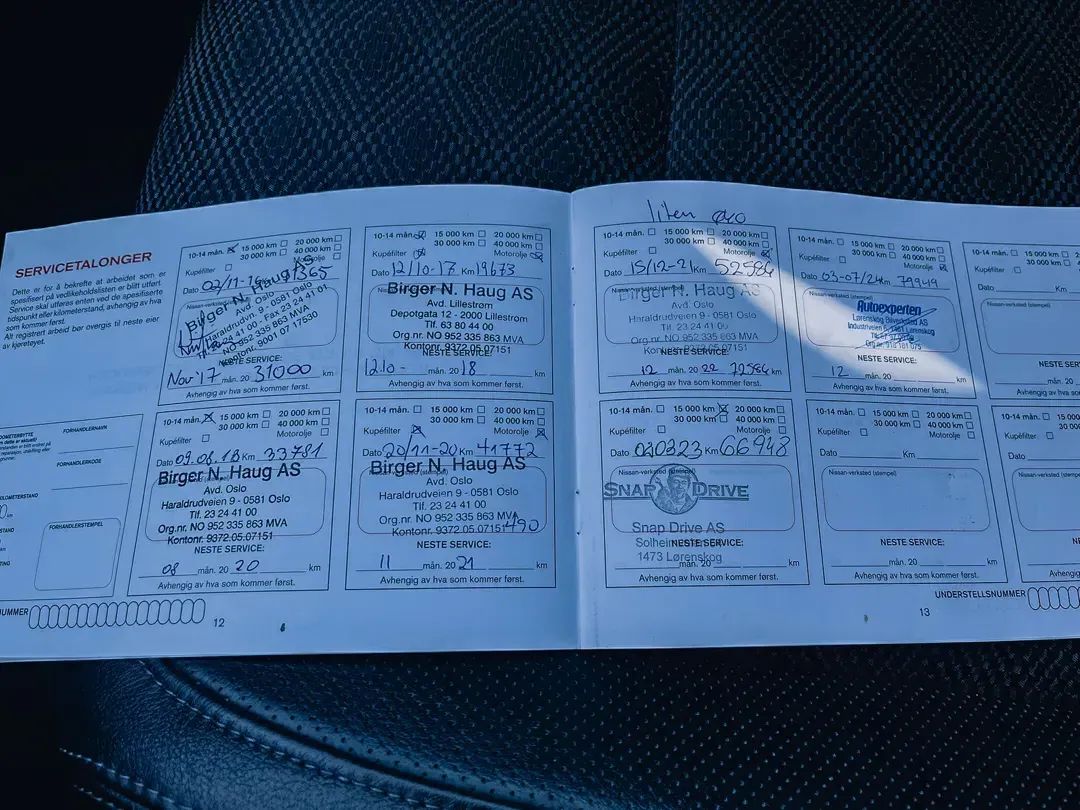 SERVICETALONGER
Dette er for å bekrefte at arbeidet som er
spesifisert på vedlikeholdslisten er blitt utført.
Service skal utføres enten ved de spesifiserte
tidspunkt eller kilometerstand, avhengig av hva
som kommer først.
Alt registrert arbeid bør overgis til neste eier
av kjøretøyet.
10-14 mån. 15 000 km 20 000 km
30 000 km 40 000 km
Kupéfilter Motorolje
Dato 02/11-16
Birger N. Haug AS
Avd. Oslo
Haraldrudvn. 9 0581 Oslo
Tlf. 23 24 41 00 - Fax 23 24 41 01
NO 952 335 863 MVA
Kontonr. 9001 07 17630
NESTE SERVICE:
Nov'17 mån. 20 31000 km
Avhengig av hva som kommer først.
10-14 mån. 15 000 km 20 000 km
30 000 km 40 000 km
Kupéfilter Motorolje
Dato 12/10-17 Km 19673
Birger N. Haug AS
Avd. Lillestrøm
Depotgata 12 - 2000 Lillestrøm
Tlf. 63 80 44 00
Org.nr. NO 952 335 863 MVA
Kontonr. 9372.05.07151
NESTE SERVICE:
12 10 - mån. 20 18 km
Avhengig av hva som kommer først.
10-14 mån. 15 000 km 20 000 km
30 000 km 40 000 km
Kupéfilter Motorolje
Dato 09.08.18 Km 33781
Birger N. Haug AS
Avd. Oslo
Haraldrudveien 9 - 0581 Oslo
Tlf. 23 24 41 00
Org.nr. NO 952 335 863 MVA
Kontonr. 9372.05.07151
NESTE SERVICE:
08 mån. 20 20 km
Avhengig av hva som kommer først.
10-14 mån. 15 000 km 20 000 km
30 000 km 40 000 km
Kupéfilter Motorolje
Dato 20/11-20 Km 41772
Birger N. Haug AS
Avd. Oslo
Haraldrudveien 9 - 0581 Oslo
Tlf. 23 24 41 00
Org.nr. NO 952 335 863 MVA
Kontonr. 9372.05.07151 490
NESTE SERVICE:
11 mån. 20 21 km
Avhengig av hva som kommer først.
FORHANDLERNAVN
FORHANDLERKODE
FORHANDLERSTEMPEL
NUMMER
12
liten
10-14 mån. 15 000 km 20 000 km
30 000 km 40 000 km
Kupéfilter Motorolje
Dato 15/12-21 Km 52584
Nissan-verksted (stempel)
Birger N. Haug AS
Avd. Oslo
Haraldrudveien 9 - 0581 Oslo
Tlf. 23 24 41 00
Org.nr. NO 952 335 863 MVA
Kontonr. 9372.05.07151
NESTE SERVICE:
12 mån. 20 22 72584 km
Avhengig av hva som kommer først.
10-14 mån. 15 000 km 20 000 km
30 000 km 40 000 km
Kupéfilter Motorolje
Dato 03-07/24 Km 79949
Nissan-verksted (stempel)
Autoexperten
Lørenskog Bilverksted AS
Industriveien 1461 Lørenskog
NESTE SERVICE:
12 mån. 20 km
Avhengig av hva som kommer først.
10-14 mån. 15 000 km
30 000 km
Kupéfilter
Dato Km
Nissan-verksted (stempel)
NESTE SERVICE
mån. 20
Avhengig av hva som kommer
10-14 mån. 15 000 km 20 000 km
30 000 km 40 000 km
Kupéfilter Motorolje
Dato 020323 Km 66948
Nissan-verksted (stempel)
SNAP DRIVE
Snap Drive AS
1473 Lørenskog
NESTE SERVICE:
mån. 20 km
Avhengig av hva som kommer først.
10-14 mån. 15 000 km 20 000 km
30 000 km 40 000 km
Kupéfilter Motorolje
Dato Km
Nissan-verksted (stempel)
NESTE SERVICE:
mån. 20 km
Avhengig av hva som kommer først.
10-14 mån. 15 000
30 000
Kupéfilter
Dato
Nissan-verksted (stempel)
NESTE SE
mån. 20
Avhengig av hva som
UNDERSTELLSNUMMER
13